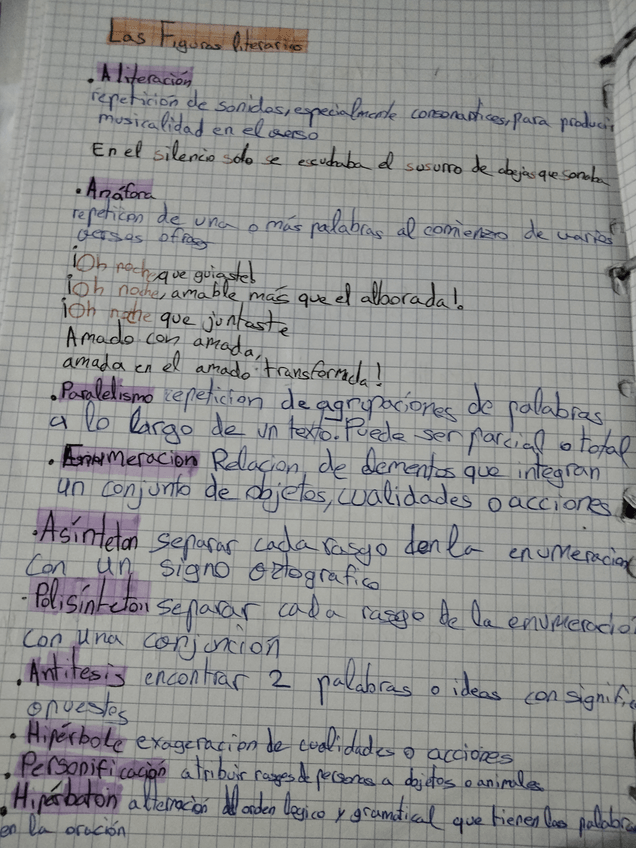 Las Figuras literarias
. Aliteración
repeticion de sonidos, especialmente consonanticos, para producir
musicalidad en el verso
En el silencio solo se escuchaba el susurro de abejas que sonaba
. Anáfora
repeticion de una o más palabras al comienzo de varios
versos o frases
¡Oh noche que guiaste!
¡Oh noche, amable más que el alborada!
¡Oh noche que juntaste
Amado con amada,
amada en el amado transformada!
. Paralelismo repeticion de agrupaciones de palabras
a lo largo de un texto. Puede ser parcial o total
. Enumeracion Relacion de elementos que integran
un conjunto de objetos, cualidades o acciones
. Asíndeton separar cada rasgo den la enumeracion
con un signo ortografico
- Polisíndeton separar cada rasgo de la enumeracio
con una conjuncion
. Antitesis encontrar 2 palabras o ideas con signific
opuestos
. Hipérbole exageracion de cualidades o acciones
. Personificación atribuir rasgos de personas a objetos o animales
. Hipérbaton alteracion del orden logico y gramatical que tienen las palabra
en la oración